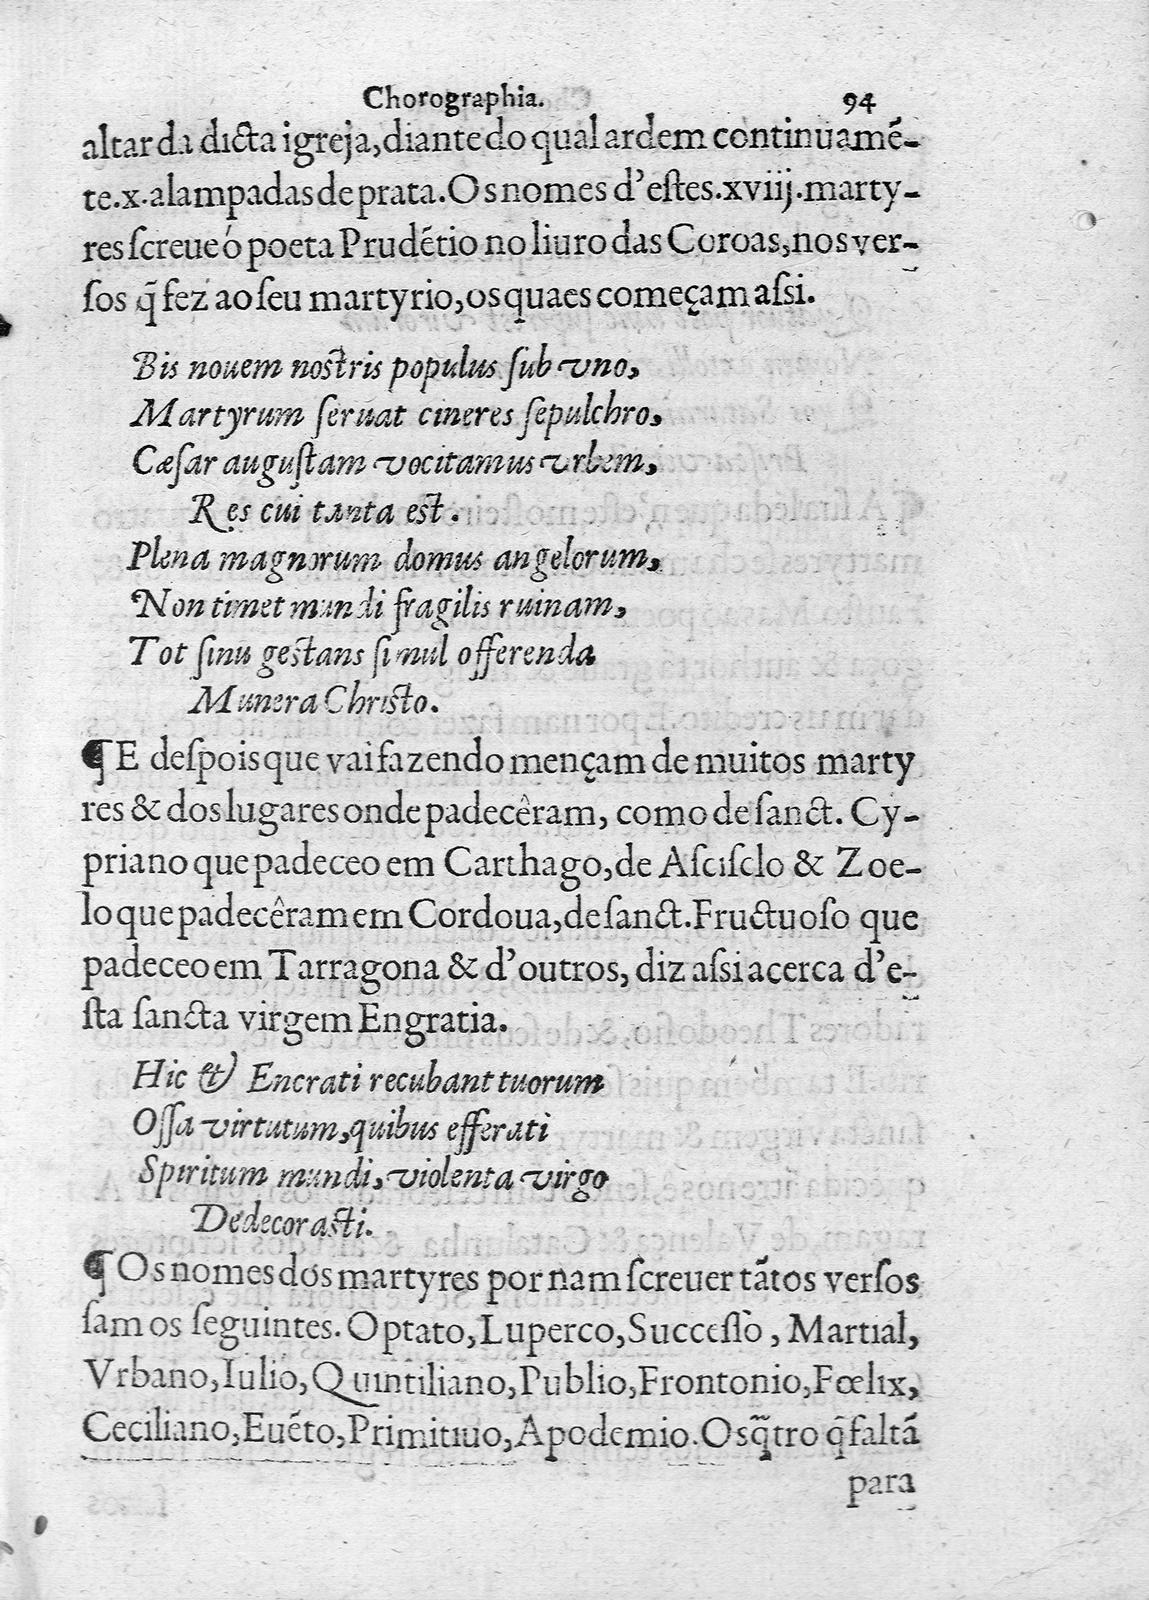 Chorographia. 94
altar da dicta igreja, diante do qual ardem continuamẽ-
te .x. alampadas de prata. Os nomes d'eſtes .xviij. marty-
res ſcreue ó poeta Prudẽtio no liuro das Coroas, nos ver-
ſos q̃ fez ao ſeu martyrio, os quaes começam aſsi.
Bis nouem noſtris populus ſub vno,
Martyrum ſeruat cineres ſepulchro,
Cæſar auguſtam vocitamus vrbem,
Res cui tanta eſt.
Plena magnorum domus angelorum,
Non timet mundi fragilis ruinam,
Tot ſinu geſtans ſimul offerenda
Munera Chriſto.
¶ E deſpois que vai fazendo mençam de muitos marty
res & dos lugares onde padecêram, como de ſanct. Cy-
priano que padeceo em Carthago, de Aſciſclo & Zoe-
lo que padecêram em Cordoua, de ſanct. Fructuoſo que
padeceo em Tarragona & d'outros, diz aſsi acerca d'e-
ſta ſancta virgem Engratia.
Hic & Encrati recubant tuorum
Oſſa virtutum, quibus efferati
Spiritum mundi, violenta virgo
Dedecoraſti.
¶ Os nomes dos martyres por nam ſcreuer tãtos verſos
ſam os ſeguintes. Optato, Luperco, Succeſſo, Martial,
Vrbano, Iulio, Quintiliano, Publio, Frontonio, Fœlix,
Ceciliano, Euẽto, Primitiuo, Apodemio. Os q̃tro q̃ faltã
para